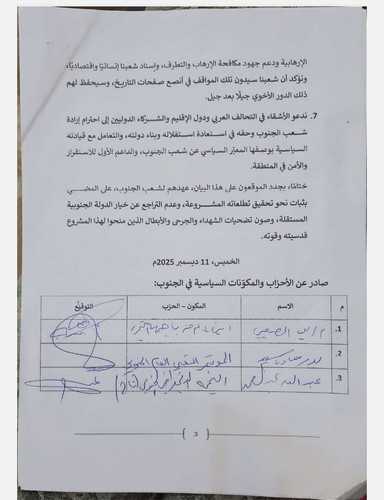 الإرهابية ودعم جهود مكافحة الإرهاب والتطرف، وإسناد شعبنا إنسانيًا واقتصاديًا،
ونؤكد أن شعبنا سيدون تلك المواقف في أنصع صفحات التاريخ، وسيحفظ لهم
ذلك الدور الأخوي جيلًا بعد جيل.
7. ندعو الأشقاء في التحالف العربي ودول الإقليم والشركاء الدوليين إلى احترام إرادة
شعب الجنوب وحقه في استعادة استقلاله وبناء دولته، والتعامل مع قيادته
السياسية بوصفها المعبّر السياسي عن شعب الجنوب، والداعم الأول للاستقرار
والأمن في المنطقة.
ختامًا، يجدد الموقعون على هذا البيان، عهدهم لشعب الجنوب، على المضي
بثبات نحو تحقيق تطلعاته المشروعة، وعدم التراجع عن خيار الدولة الجنوبية
المستقلة، وصون تضحيات الشهداء والجرحى والأبطال الذين منحوا لهذا المشروع
قدسيته وقوته.
الخميس، 11 ديسمبر 2025م
صادر عن الأحزاب والمكوّنات السياسية في الجنوب:
م الاسم المكون - الحزب التوقيع
1.
2. المؤتمر الجنوبي
3. عبد الله
3